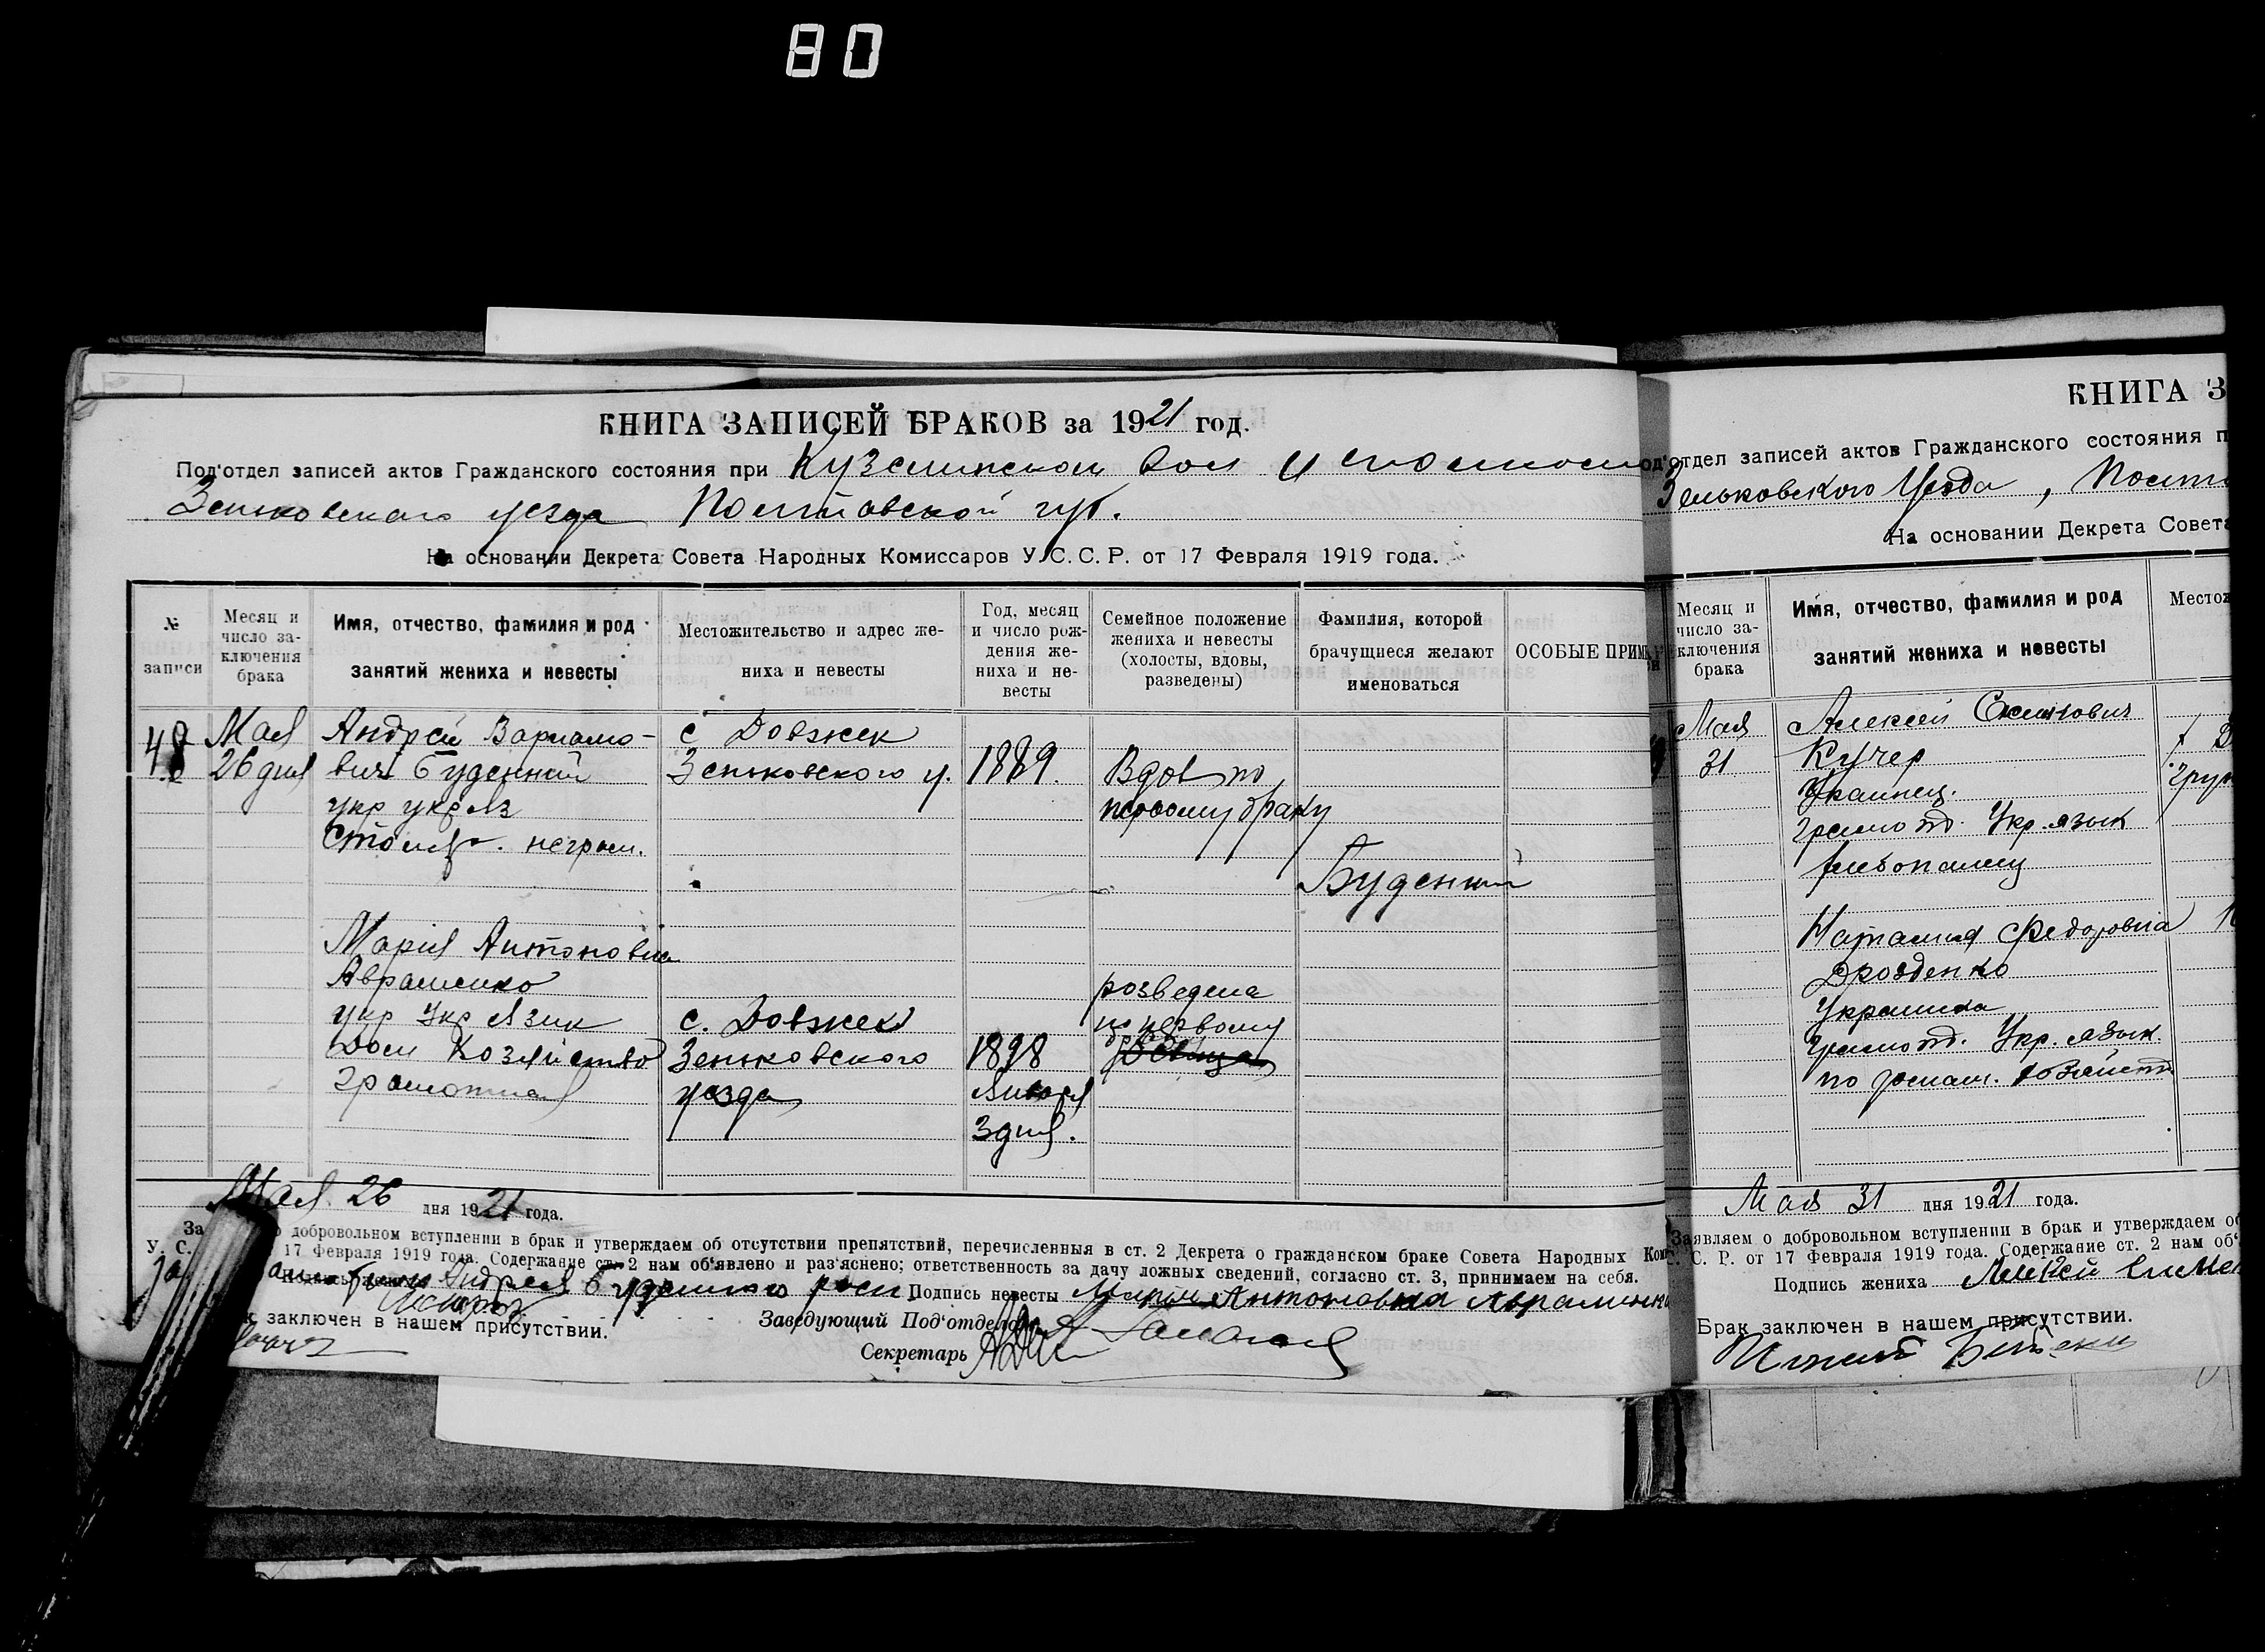 80
КНИГА ЗАПИСЕЙ БРАКОВ за 1921 год.
Под'отдел записей актов Гражданского состояния при Куземинском Вол
Зеньковского уезда Полтавской губ.
На основании Декрета Совета Народных Комиссаров У.С.С.Р. от 17 Февраля 1919 года.
№ записи
Месяц и число за-
ключения
брака
Имя, отчество, фамилия и род
занятий жениха и невесты
Местожительство и адрес же-
ниха и невесты
Год, месяц
и число рож-
дения же-
ниха и не-
весты
Семейное положение
жениха и невесты
(холосты, вдовы,
разведены)
Фамилия, которой
брачущиеся желают
именоваться
ОСОБЫЕ ПРИМ
48
Мая
26 дня
Андрей Варламо-
вич Буденний
укр укр яз
неграм.
с Довжек
Зеньковского у.
1889.
Вдов по
первому браку
Буденний
Мария Антоновна
Авраменко
укр Укр Язик
Дом Хозяйство
грамотная
с. Довжек
Зеньковского
уезда
1898
Января
3 дня.
розведена
по первому
Мая 26 дня 1921 года.
За о добровольном вступлении в брак и утверждаем об отсутствии препятствий, перечисленныя в ст. 2 Декрета о гражданском браке Совета Народных Ком
У. С. 17 Февраля 1919 года. Содержание ст. 2 нам об'явлено и раз'яснено; ответственность за дачу ложных сведений, согласно ст. 3, принимаем на себя.
Андрея Буденного Подпись невесты Мария Антоновна Авраменко
к заключен в нашем присутствии.
Заведующий Под'отделом
Секретарь
КНИГА З
од'отдел записей актов Гражданского состояния п
Зеньковского Уезда, Полт
На основании Декрета Совета
Месяц и
число за-
ключения
брака
Имя, отчество, фамилия и род
занятий жениха и невесты
Местож
Мая
31
Алексей
Кучер
Украинец.
грамотн. Укр. язык
хлебопашец
Наталия Федоровна
Дрозденко
Украинка
грамотн. Укр. язык.
по домаш. хозяйств
Мая 31 дня 1921 года.
Заявляем о добровольном вступлении в брак и утверждаем об
С. Р. от 17 Февраля 1919 года. Содержание ст. 2 нам об'
Подпись жениха Алексей
Брак заключен в нашем присутствии.